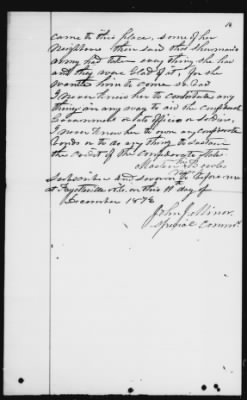 14
came to this place. some of her
neighbors then said that Sherman's
army had taken every thing she had
and they were Glad of it, for she
wanted him to come so bad
I never knew her to contribute any
thing in any way to aid the confederate
Government or its officers or soldiers.
I never knew her to own any confederate
bonds or to do any thing to sustain
the credit of the confederate states
Subscribed and sworn to before me
at Fayetteville N.C. on this 11th day of
December 1878
John J. Minor
Special Commr